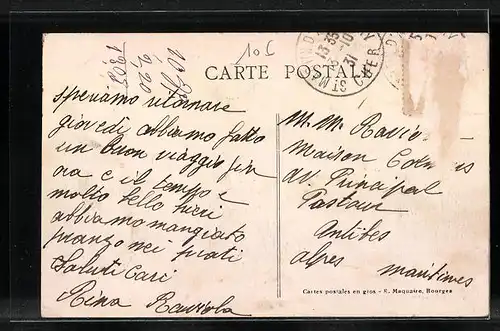 10 f
CARTE POSTALE
ST AMAND
13 35
8-10
31
CHER
speriamo ritornare
giovedì abbiamo fatto
un buon viaggio fin
ora e il tempo è
molto bello hieri
abbiamo mangiato
pranzo nei prati
Saluti Cari
Rina
M. M.
Maison
Av. Principal
Pastour
Antibes
alpes
maritimes
Cartes postales en gros - E. Maquaire, Bourges